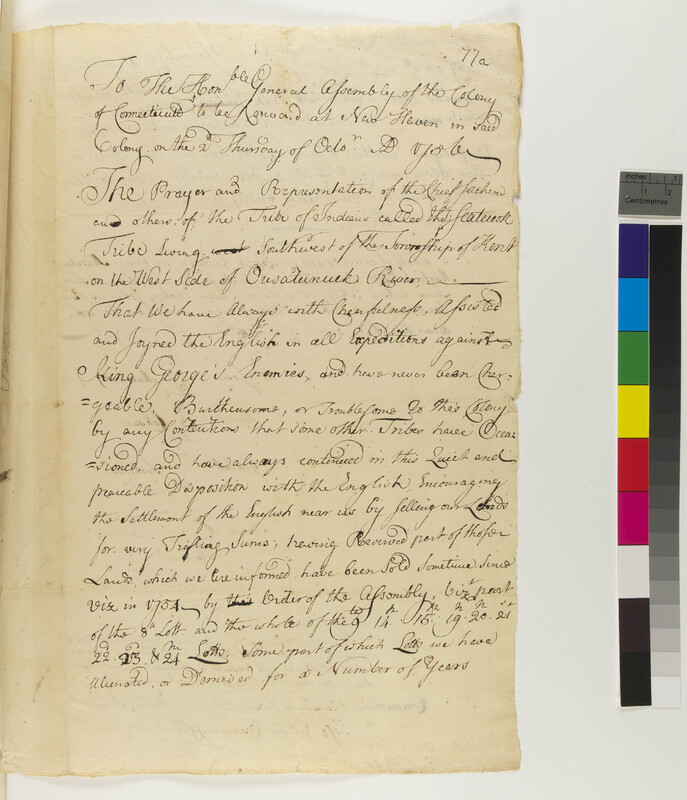 77a
To The Hon:ble General Assembly of the Colony
of Connecticutt to be Conven'd at New Haven in said
Colony on the 2d Thursday of Octor AD 1756
The Prayer and Representation of the Chief Sachem
and others of the Tribe of Indians called the Scatecook
Tribe Living west Southwest of the Township of Kent
on the West Side of Ousatunuck River
That We have Always with Chearfulness, Assisted
and Joyned the English in all Expeditions against
King George's Enemies, and have never been Cher=
=geable, Burthensome, or Troublesome To this Colony
by any Contentions that some other Tribes have Occa
=sioned, and have always continued in this Quiet and
peaceable Disposition with the English Encouraging
the Settlement of the English near us by selling our Lands
for very Trifling Sums; having Reserved part of those
Lands, which we are informed have been Sold Sometime Since
viz in 1754 by this Order of the Assembly, vizt part
of the 8th Lott and the whole of the 9th 14th 15th 19th 20th 21st
22d 23d & 24th Lotts, Some part of which Lotts we have
alienated, or Demised for a Number of Years
Inches 1 2
Centimetres